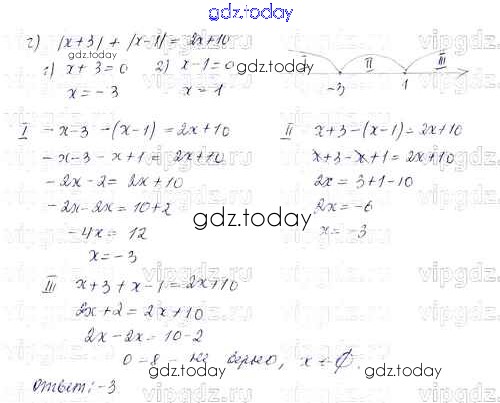 gdz.today
г) |x+3| + |x-1| = 2x+10
1) x+3=0 2) x-1=0
x=-3 x=1
I II III
-3 1
I -x-3-(x-1)=2x+10
-x-3-x+1=2x+10
-2x-2=2x+10
-2x-2x=10+2
-4x=12
x=-3
II x+3-(x-1)=2x+10
x+3-x+1=2x+10
2x=3+1-10
2x=-6
x=-3
III x+3+x-1=2x+10
2x+2=2x+10
2x-2x=10-2
0=8 - не верно, x ∈ ∅.
Ответ: -3
gdz.today
gdz.today
gdz.today
gdz.today
gdz.today
gdz.today